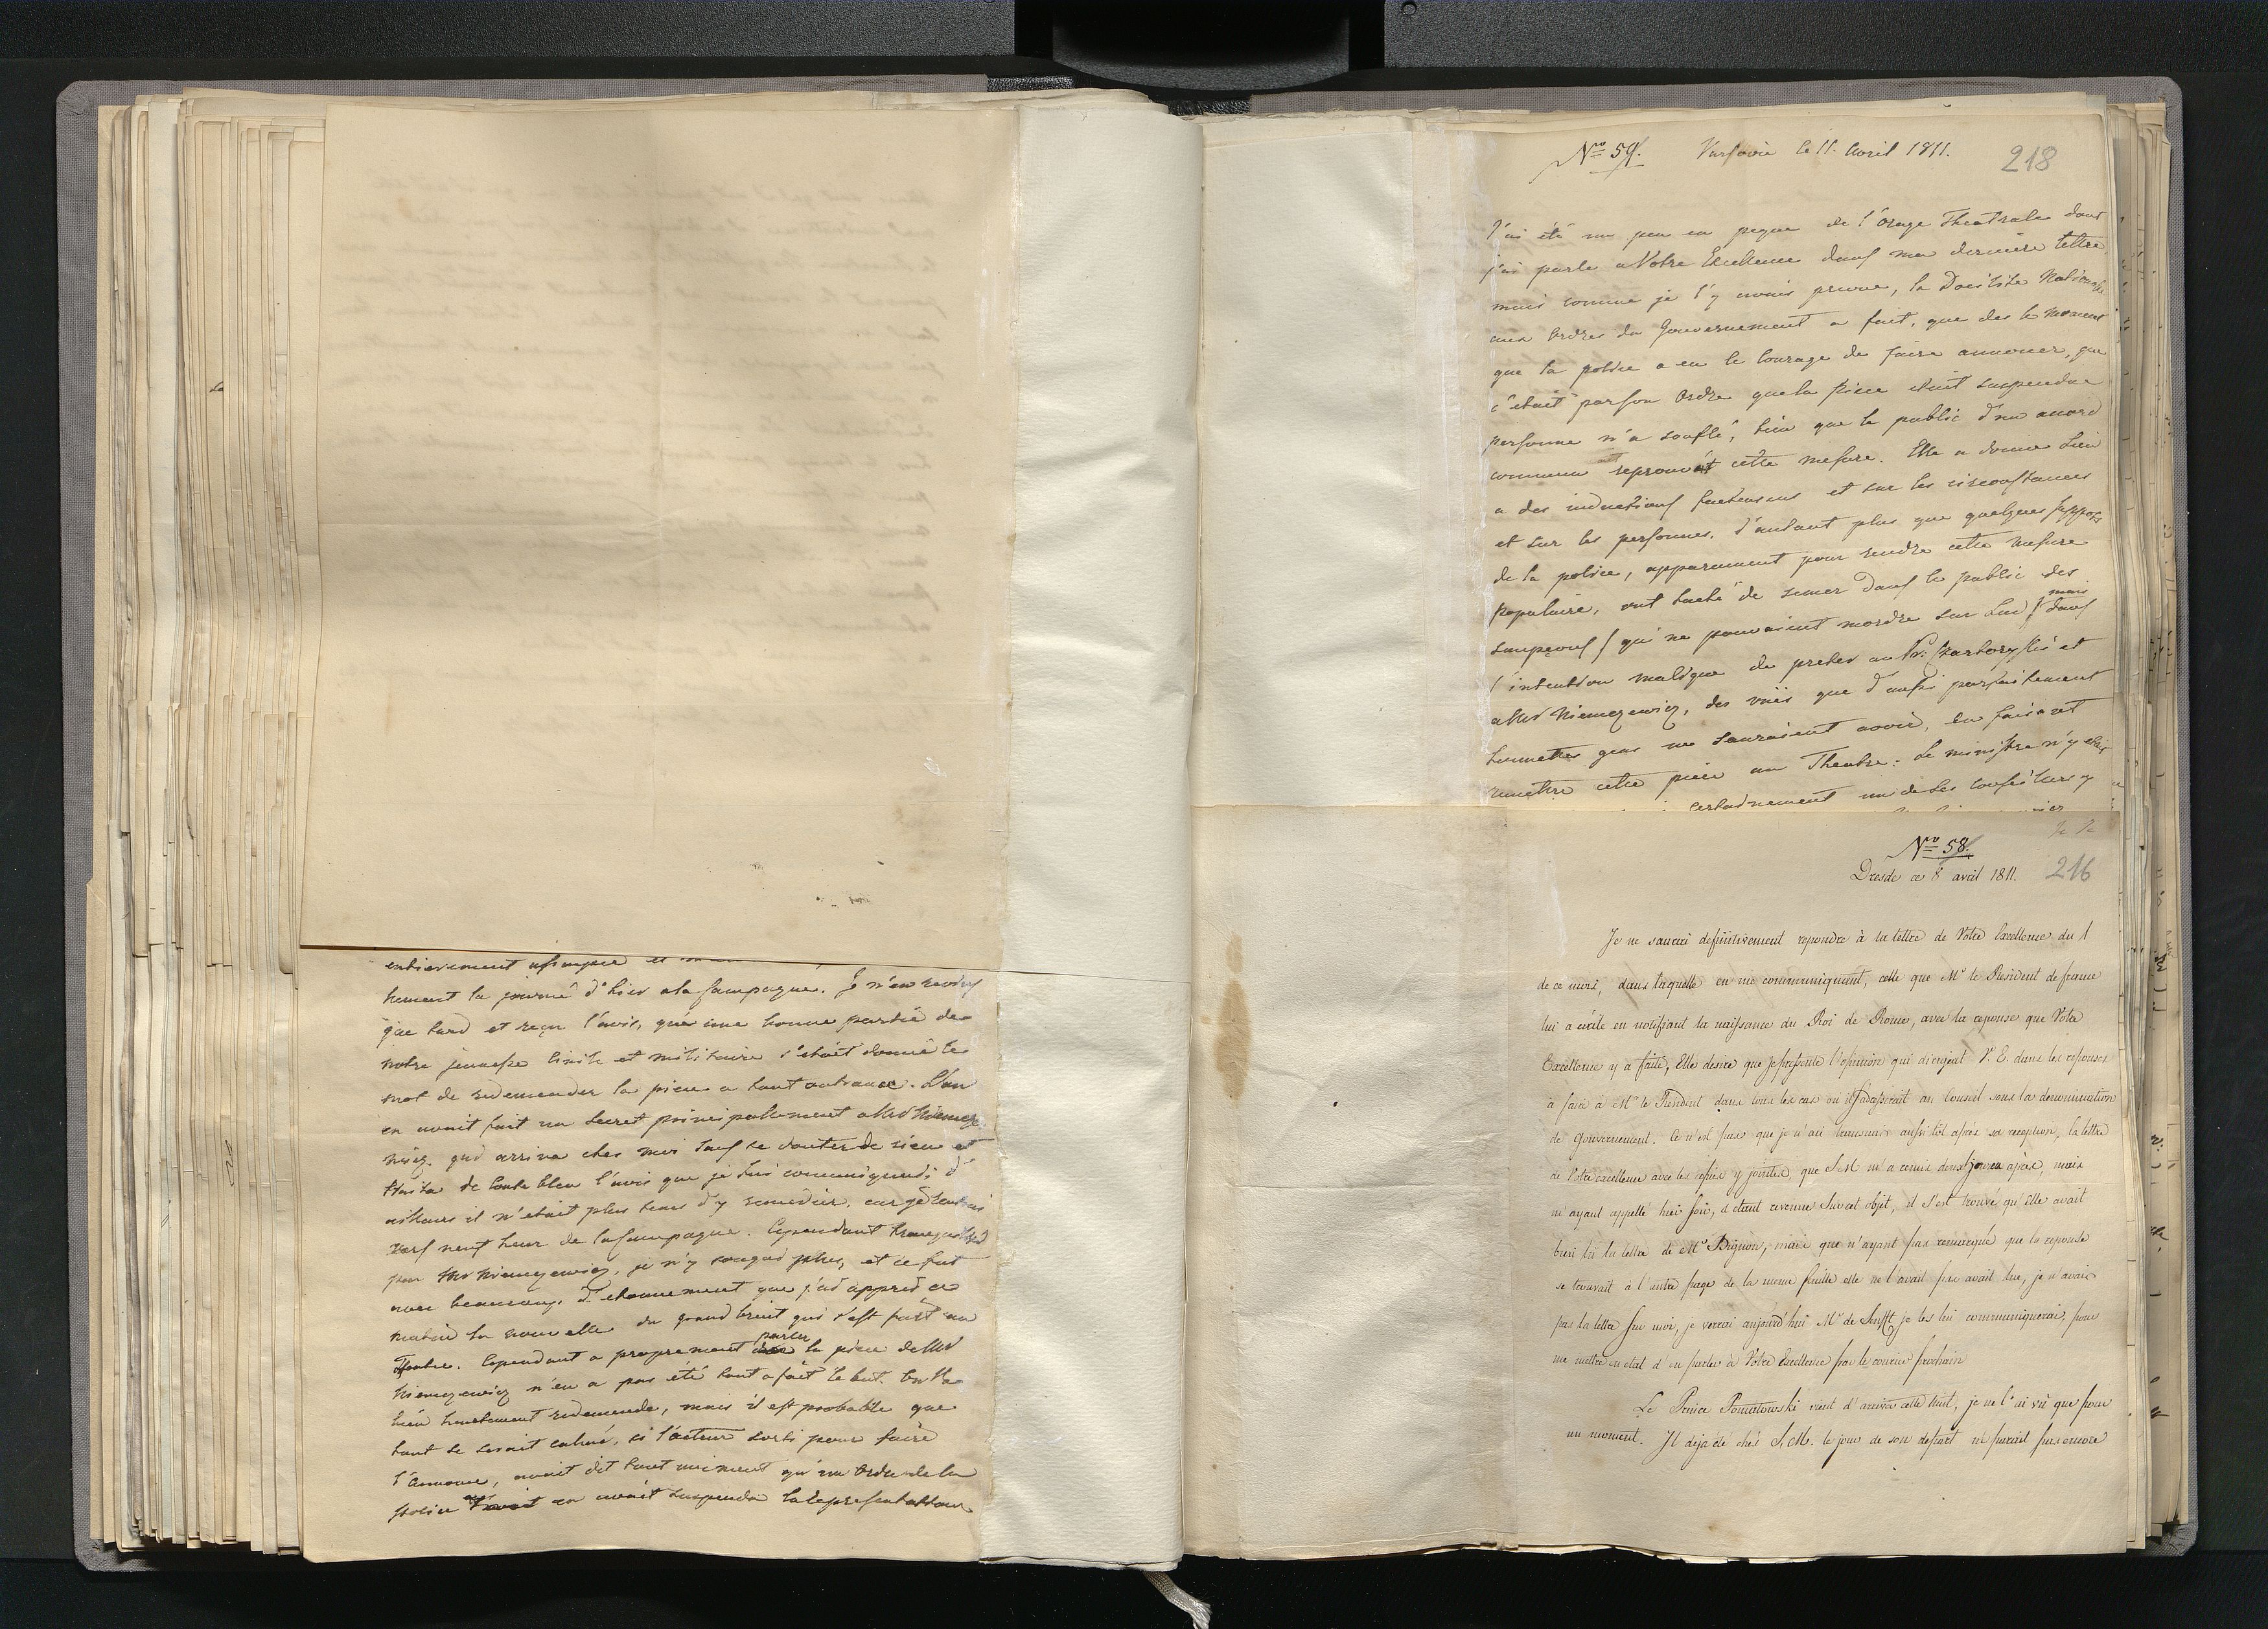 entierement
nement la journé d'hier a la Campagne. Je n'en revins
que tard et reçu l'avis, qu'une bonne partie de
notre jeunesse Civile et militaire s'était donné le
mot de redemander la piece a tout outrance. L'on
en avait fait un Secret principalement a Mr Niemcze-
wicz qui arriva chez moi sans se douter de rien et
traita de Conte bleu l'avis que je lui communiquai; d'
ailleurs il n'etait plus tems d'y remedier, car je
vers neuf heur de la Campagne. Cependant tranquilisé
par Mr Niemczewicz, je n'y songai plus, et ce fut
avec beaucoup d'etonnement que j'ai appris ce
matin la nouvelle du grand bruit qui s'est fait au
Teatre. Cependant a proprement parler la piece de Mr
Niemczewicz n'en a pas été tout a fait le but. On l'a
bien hautement redemandé, mais il est probable que
tout se serait calmé, si l'acteur sorti pour faire
l'annonce, avait dit tout uniment qu'un Ordre de la
police en avait suspendu la representation
Nro 59. Varsovie le 11. Avril 1811. 218
J'ai été un peu en peine de l'Orage Theatrale dont
j'ai parlé a Votre Excellence dans ma derniere lettre,
mais comme je l'y avais prevue, la Docilité Nationale
aux Ordres du Gouvernement a fait, que des le moment
que la police a eu le Courage de faire annoncer, que
c'etait par son Ordre que la piece etait suspendue
personne n'a souflé, bien que le public d'un accord
commun reprouvat cette mesure. Elle a donné Lieu
a des inductions facheuses et sur les circonstances
et sur les personnes, d'autant plus que quelques suppots
de la police, apparament pour rendre cette mesure
populaire, ont taché de semer dans le public des
soupçons (qui ne pouvaient mordre sur Lui) mais dans
l'intention maligne de preter au Pr: Czartoryski et
a Mr Niemczewicz, des vuës que d'aussi parfaitement
honnettes gens ne sauraient avoir, en faisant
remettre cette piece au Theatre. Le ministre n'y etait
certainement un de ses Conseillers y
Nro 58.
Dresde ce 8 avril 1811. 216
Je ne saurai definitivement repondre à la lettre de Votre Excellence du 1
de ce mois, dans laquelle en me communiquant, celle que Mr le Resident de france
lui a écrite en notifiant la naissance du Roi de Rome, avec la reponse que Votre
Excellence y a faite, Elle desire que je presente l'opinion qui dirigeait V. E. dans les reponses
à faire à Mr le Resident dans tous les cas ou il s'adresserait au Conseil sous la denomination
de Gouvernement. Ce n'est pas que je n'ai transmis aussitôt après sa reception, la lettre
de Votre excellence avec les copies y jointes, que S. M m'a remis deux jours après, mais
m'ayant appellé hier soir, et étant revenue sur cet objet, il s'est trouvé qu'Elle avait
bien lu la lettre de Mr Bignon, mais que n'ayant pas remarqué que la reponse
se trouvait à l'autre page de la meme feuille elle ne l'avait pas avait lue, je n'avais
pas la lettre sur moi, je verrai aujourd'hui Mr de Senfft je les lui communiquerai, pour
me mettre en etat d'en parler à Votre Excellence par le courier prochain
Le Prince Poniatowski vient d'arriver cette nuit, je ne l'ai vû que pour
un moment. Il deja été chés S. M. le jour de son depart ne parait pas encore